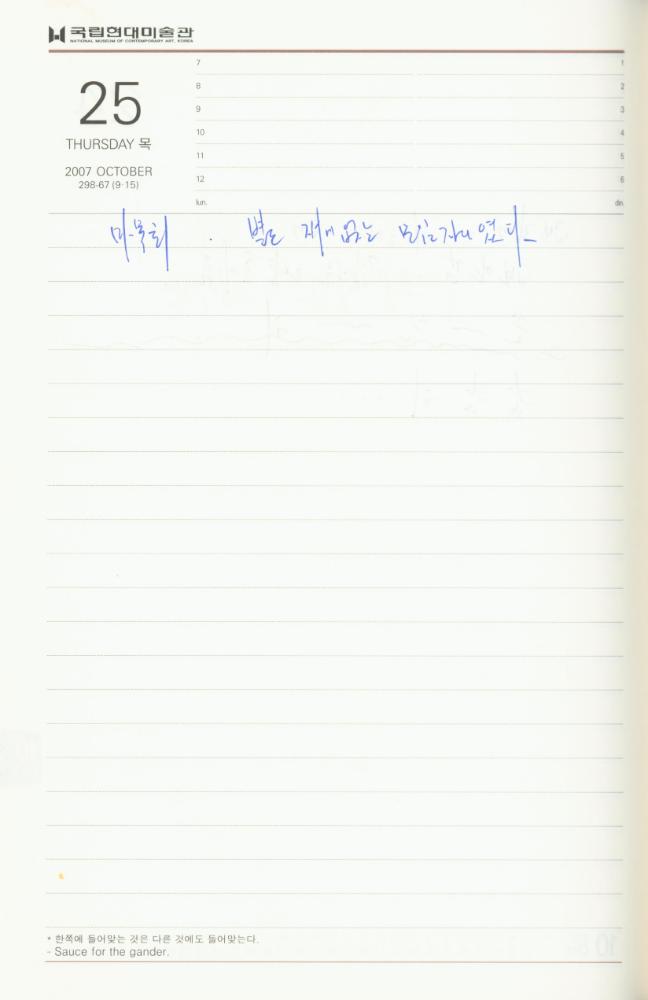 국립현대미술관
NATIONAL MUSEUM OF CONTEMPORARY ART, KOREA
25
THURSDAY 목
2007 OCTOBER
298-67 (9-15)
7
8
9
10
11
12
lun.
1
2
3
4
5
6
din.
별 없는 모임
* 한쪽에 들어맞는 것은 다른 것에도 들어맞는다.
- Sauce for the gander.